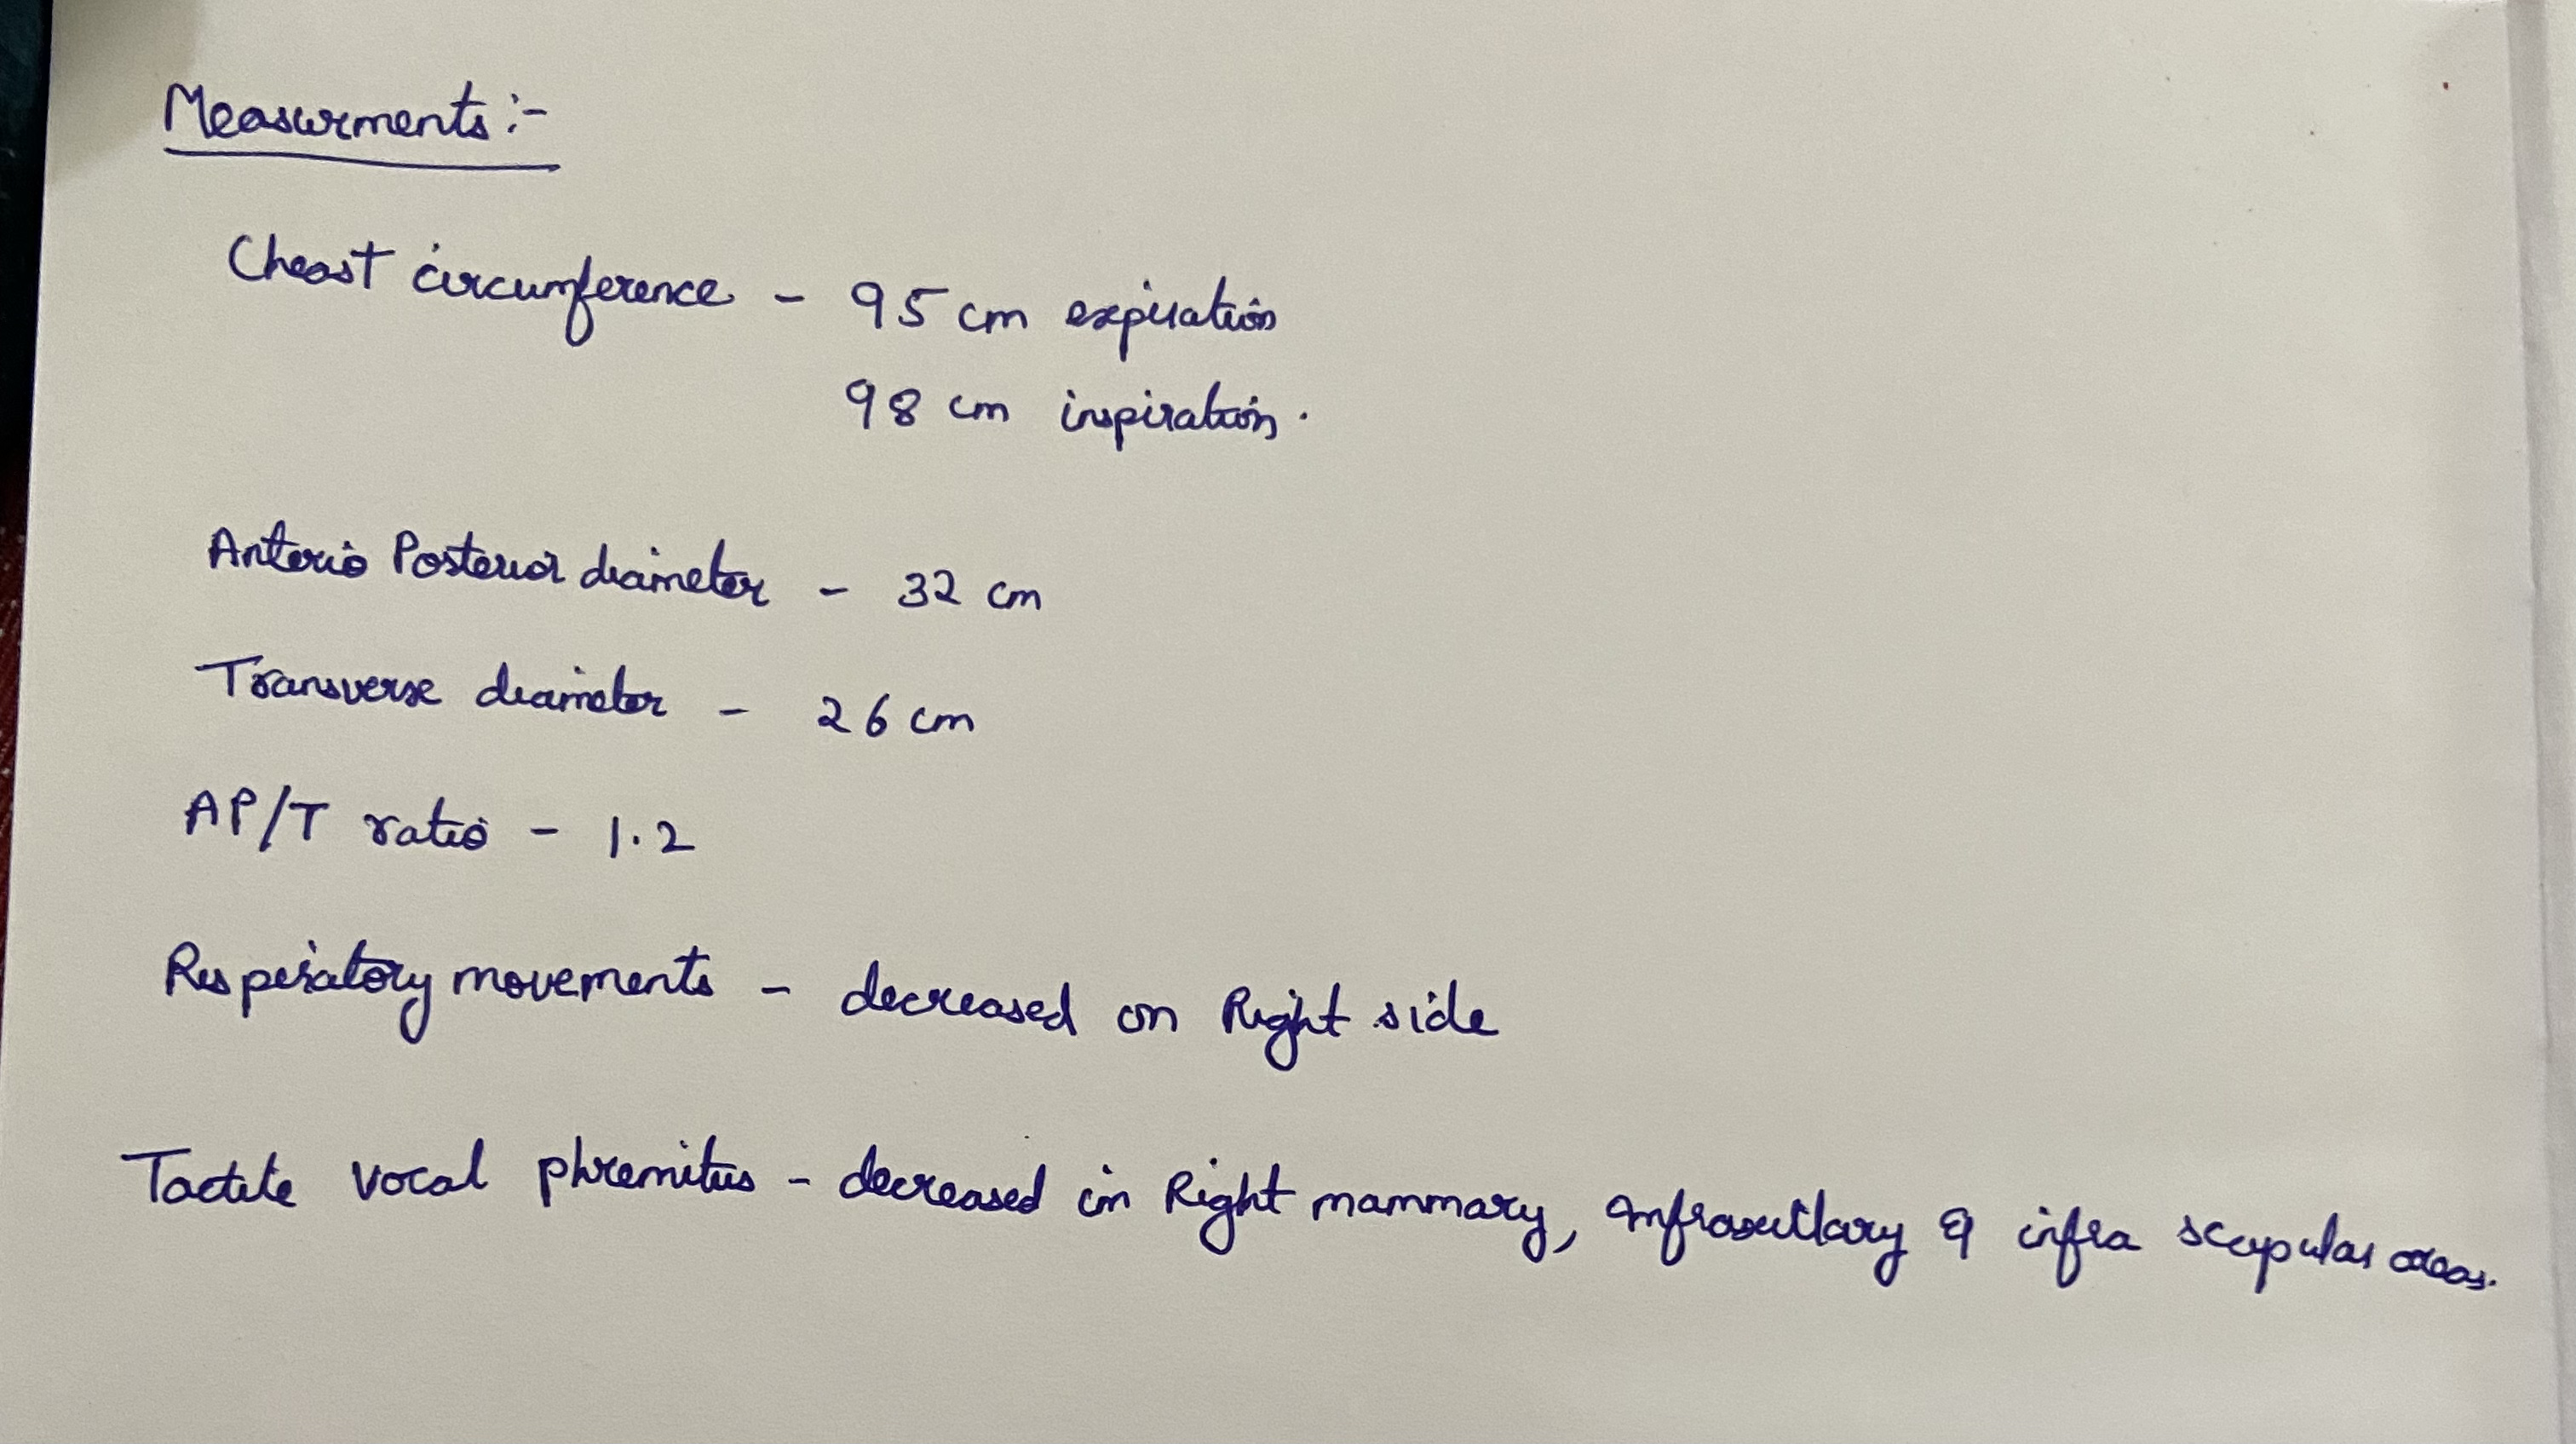 Measurments :-
Cheast circumference - 95 cm expiration
98 cm inspiration.
Anterio Posterior diameter - 32 cm
Transverse diameter - 26 cm
AP/T ratio - 1.2
Respiratory movements - decreased on Right side
Tactile vocal phremitus - decreased in Right mammary, Infraxillary & infra scapular areas.